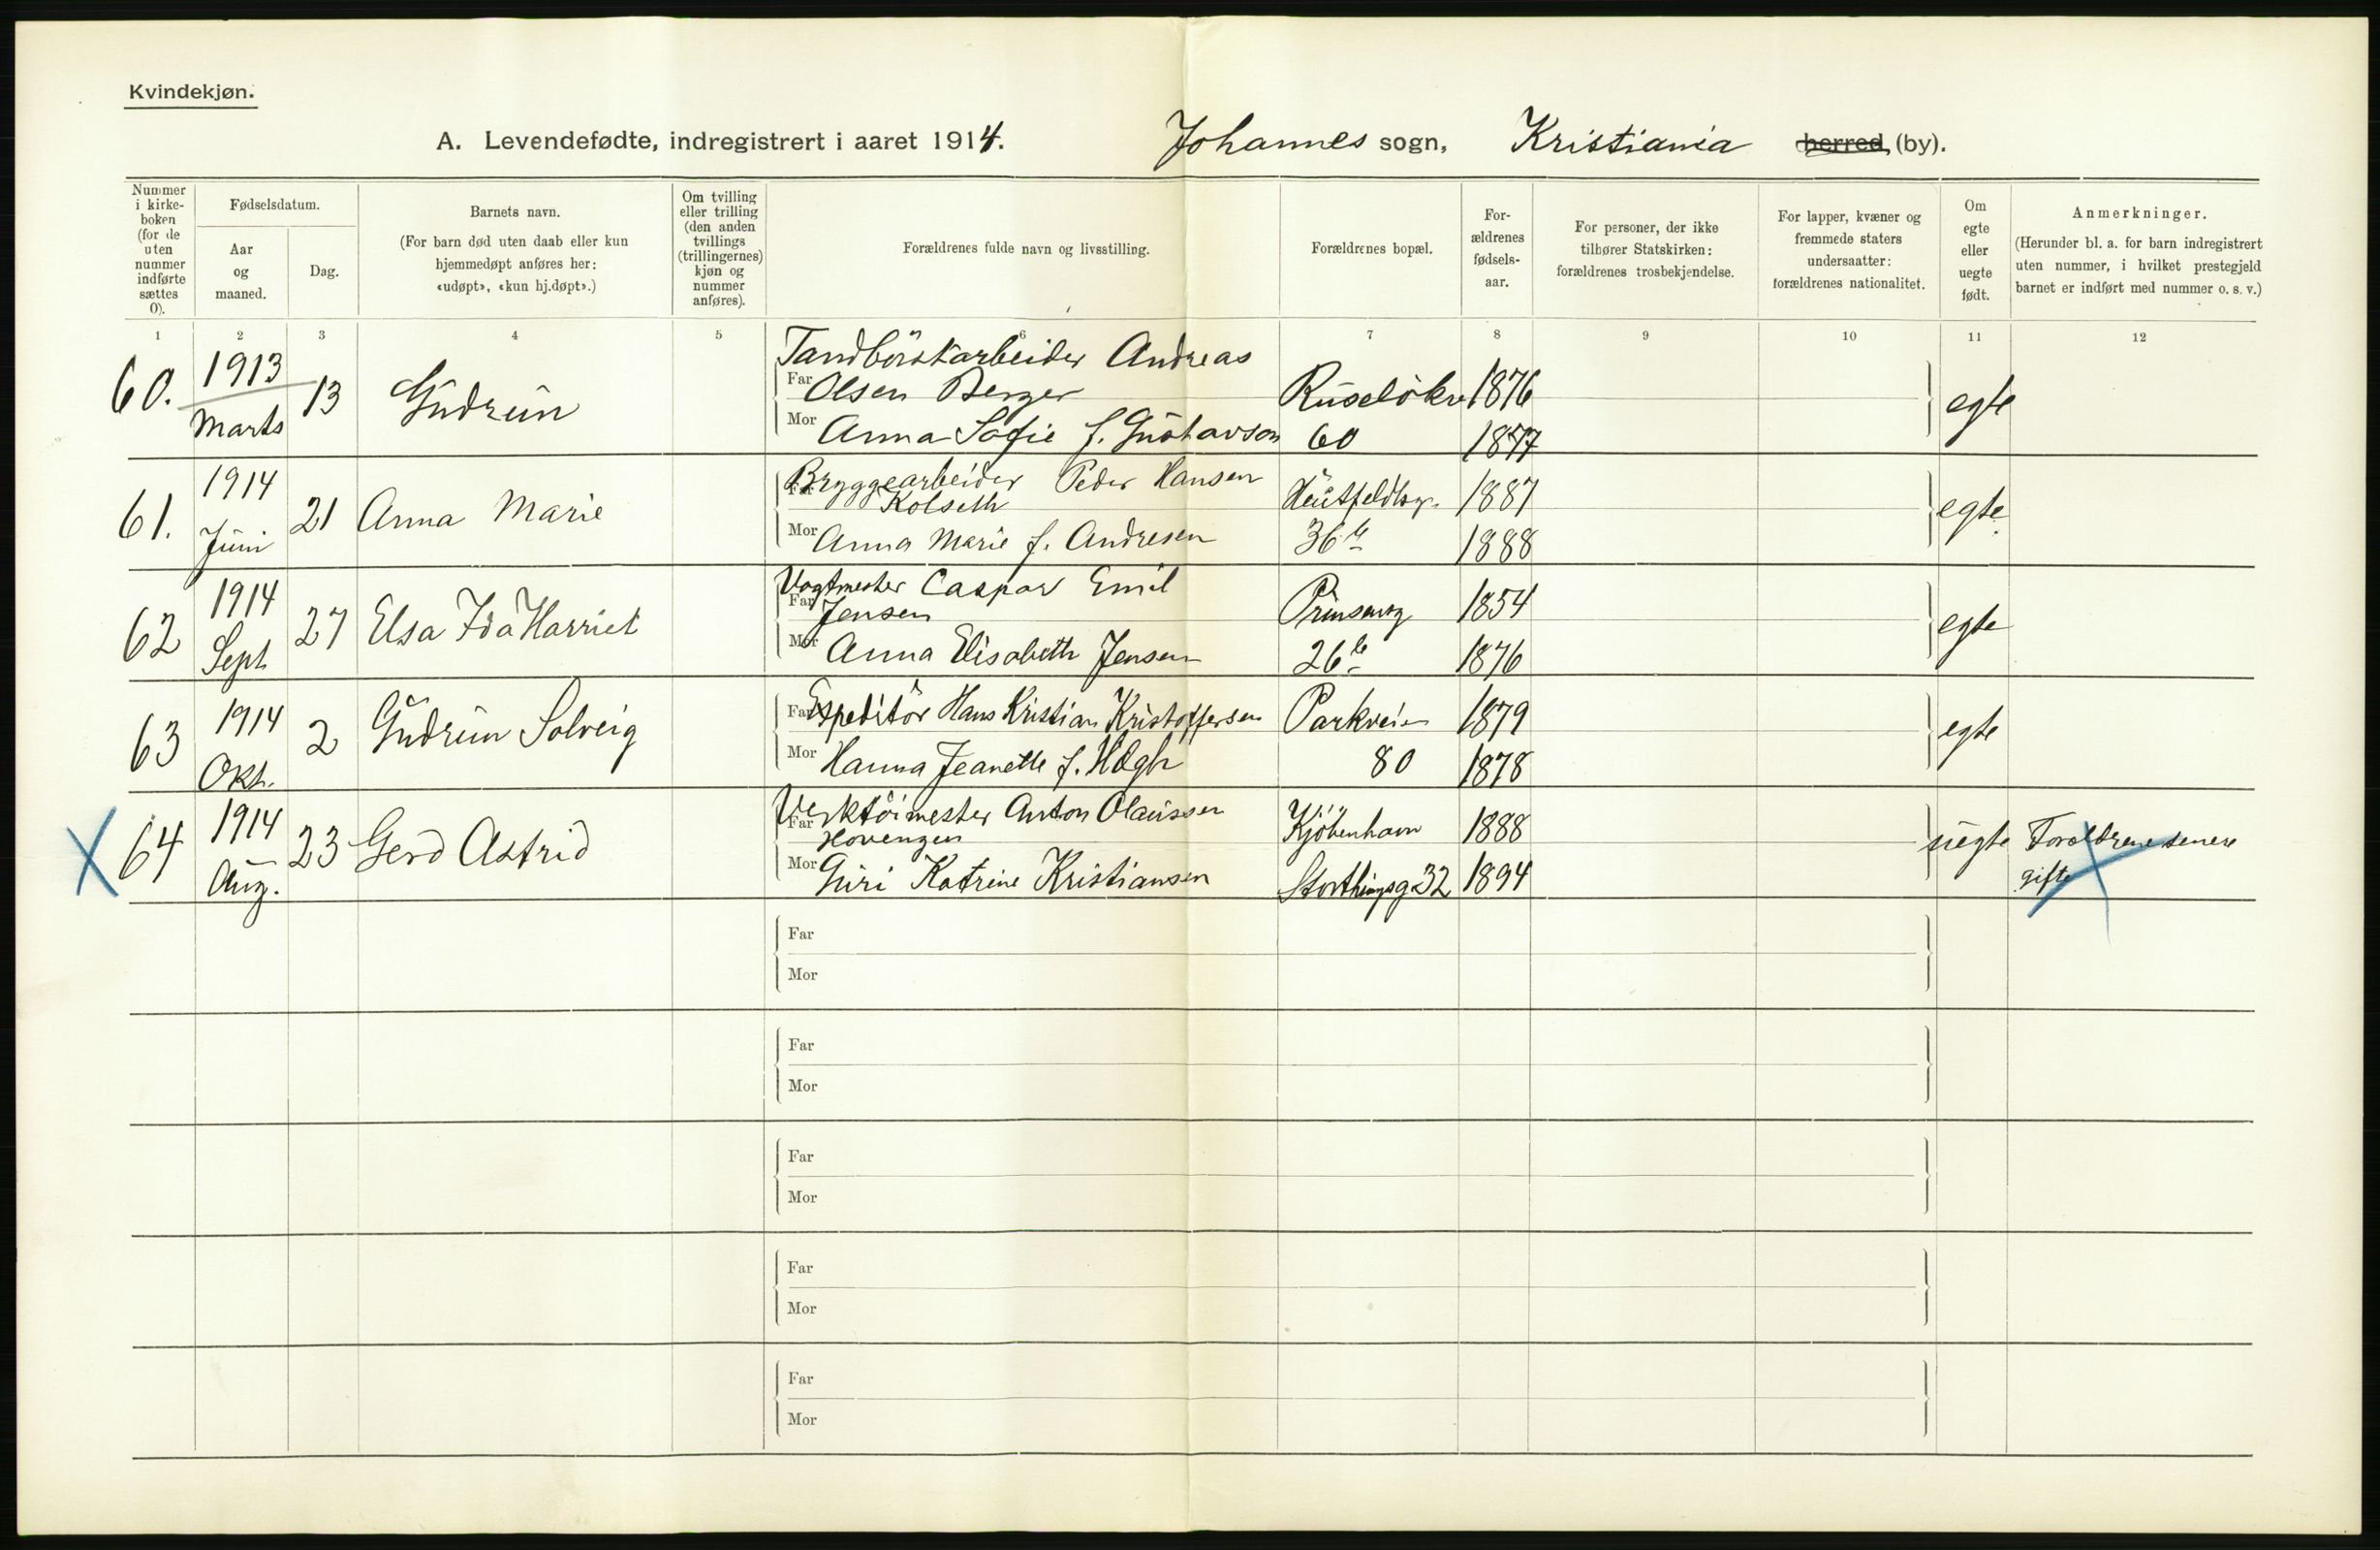 Kvindekjøn.
A. Levendefødte, indregistrert i aaret 1914. Johannes sogn, Kristiania herred, (by).
Nummer i kirke-boken (for de uten nummer indførte sættes 0).
Fødselsdatum.
Aar og maaned.
Dag.
Barnets navn.
(For barn død uten daab eller kun hjemmedøpt anføres her: «udøpt», «kun hj.døpt».)
Om tvilling eller trilling (den anden tvillings (trillingernes) kjøn og nummer anføres).
Forældrenes fulde navn og livsstilling.
Forældrenes bopæl.
For-ældrenes fødsels-aar.
For personer, der ikke tilhører Statskirken: forældrenes trosbekjendelse.
For lapper, kvæner og fremmede staters undersaatter: forældrenes nationalitet.
Om egte eller uegte født.
Anmerkninger.
(Herunder bl. a. for barn indregistrert uten nummer, i hvilket prestegjeld barnet er indført med nummer o. s. v.)
1 2 3 4 5 6 7 8 9 10 11 12
60. 1913 Marts 13 Gudrun
Tandbörstarbeider Andreas
Far Olsen Berger Ruselökv 1876 egte
Mor Anna Sofie f. Gustavson 60 1877
61. 1914 Juni 21 Anna Marie
Far Bryggearbeider Peder Hansen
Kolseth Huitfeldtsg. 1887 egte
Mor Anna Marie f. Andresen 36 b 1888
62 1914 Sept 27 Elsa Ida Harriet
Vogtmester Caspar Emil
Far Jensen Prinsensg 1854 egte
Mor Anna Elisabeth Jensen 26 b 1876
63 1914 Okt. 2 Gudrun Solveig
Far Expeditör Hans Kristian Kristoffersen Parkveien 1879 egte
Mor Hanna Jeanette f. Høgh 80 1878
X 64 1914 Aug. 23 Gerd Astrid
Verktöimester Anton Olaussen
Far Hovengen Kjöbenhavn 1888 uegte Forældrene senere
Mor Guri Katrine Kristiansen Storthingsg 32 1894 gifte
Far
Mor
Far
Mor
Far
Mor
Far
Mor
Far
Mor